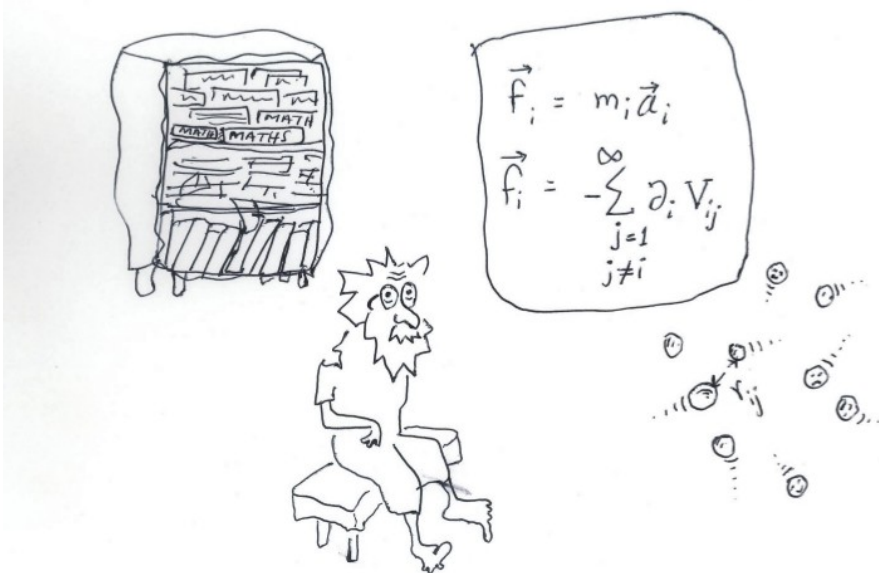 MATH
MATH MATHS
f⃗ᵢ = mᵢ a⃗ᵢ
f⃗ᵢ = -∑_{j=1, j≠i}^{∞} ∂ᵢ Vᵢⱼ
rᵢⱼ